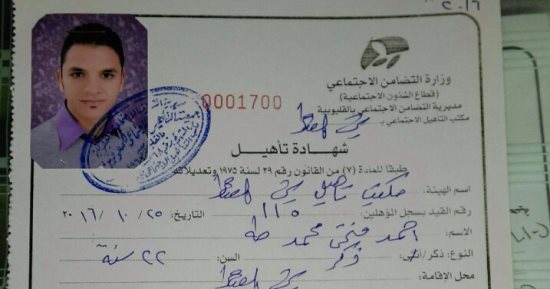 ٢٠١٦
وزارة التضامن الاجتماعي
(قطاع الشئون الاجتماعية)
مديرية التضامن الاجتماعي بالقليوبية
مكتب التأهيل الاجتماعي بـ
0001700
شهادة تأهيل
طبقا للمادة (٧) من القانون رقم ٣٩ لسنة ١٩٧٥ وتعديلاته
اسم الهيئة: مكتب تأهيل
رقم القيد بسجل المؤهلين ١١٥ التاريخ: ٢٥ / ١٠ / ٢٠١٦
الاسم: احمد فتحي محمد طه
النوع: ذكر/انثى ذكر السن: ٢٢ سنة
محل الإقامة: